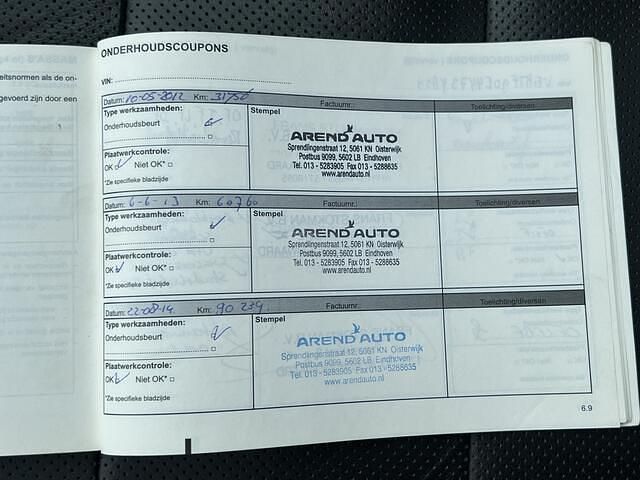 eitsnormen als de on-
gevoerd zijn door een
ONDERHOUDSCOUPONS
VIN:
Datum: 10-05-2012 Km: 31750 Factuurnr.: Toelichting/diversen
Type werkzaamheden:
Onderhoudsbeurt
Plaatwerkcontrole:
OK Niet OK*
*Zie specifieke bladzijde
Stempel
AREND AUTO
Sprendlingenstraat 12, 5061 KN Oisterwijk
Postbus 9099, 5602 LB Eindhoven
Tel. 013 - 5283905 Fax 013 - 5288635
www.arendauto.nl
Datum: 6-6-13 Km: 60760 Factuurnr.: Toelichting/diversen
Type werkzaamheden:
Onderhoudsbeurt
Plaatwerkcontrole:
OK Niet OK*
*Zie specifieke bladzijde
Stempel
AREND AUTO
Sprendlingenstraat 12, 5061 KN Oisterwijk
Postbus 9099, 5602 LB Eindhoven
Tel. 013 - 5283905 Fax 013 - 5288635
www.arendauto.nl
Datum: 22-08-14 Km: 90 239 Factuurnr.: Toelichting/diversen
Type werkzaamheden:
Onderhoudsbeurt
Plaatwerkcontrole:
OK Niet OK*
*Zie specifieke bladzijde
Stempel
AREND AUTO
Sprendlingenstraat 12, 5061 KN Oisterwijk
Postbus 9099, 5602 LB Eindhoven
Tel. 013 - 5283905 Fax 013 - 5288635
www.arendauto.nl
6.9